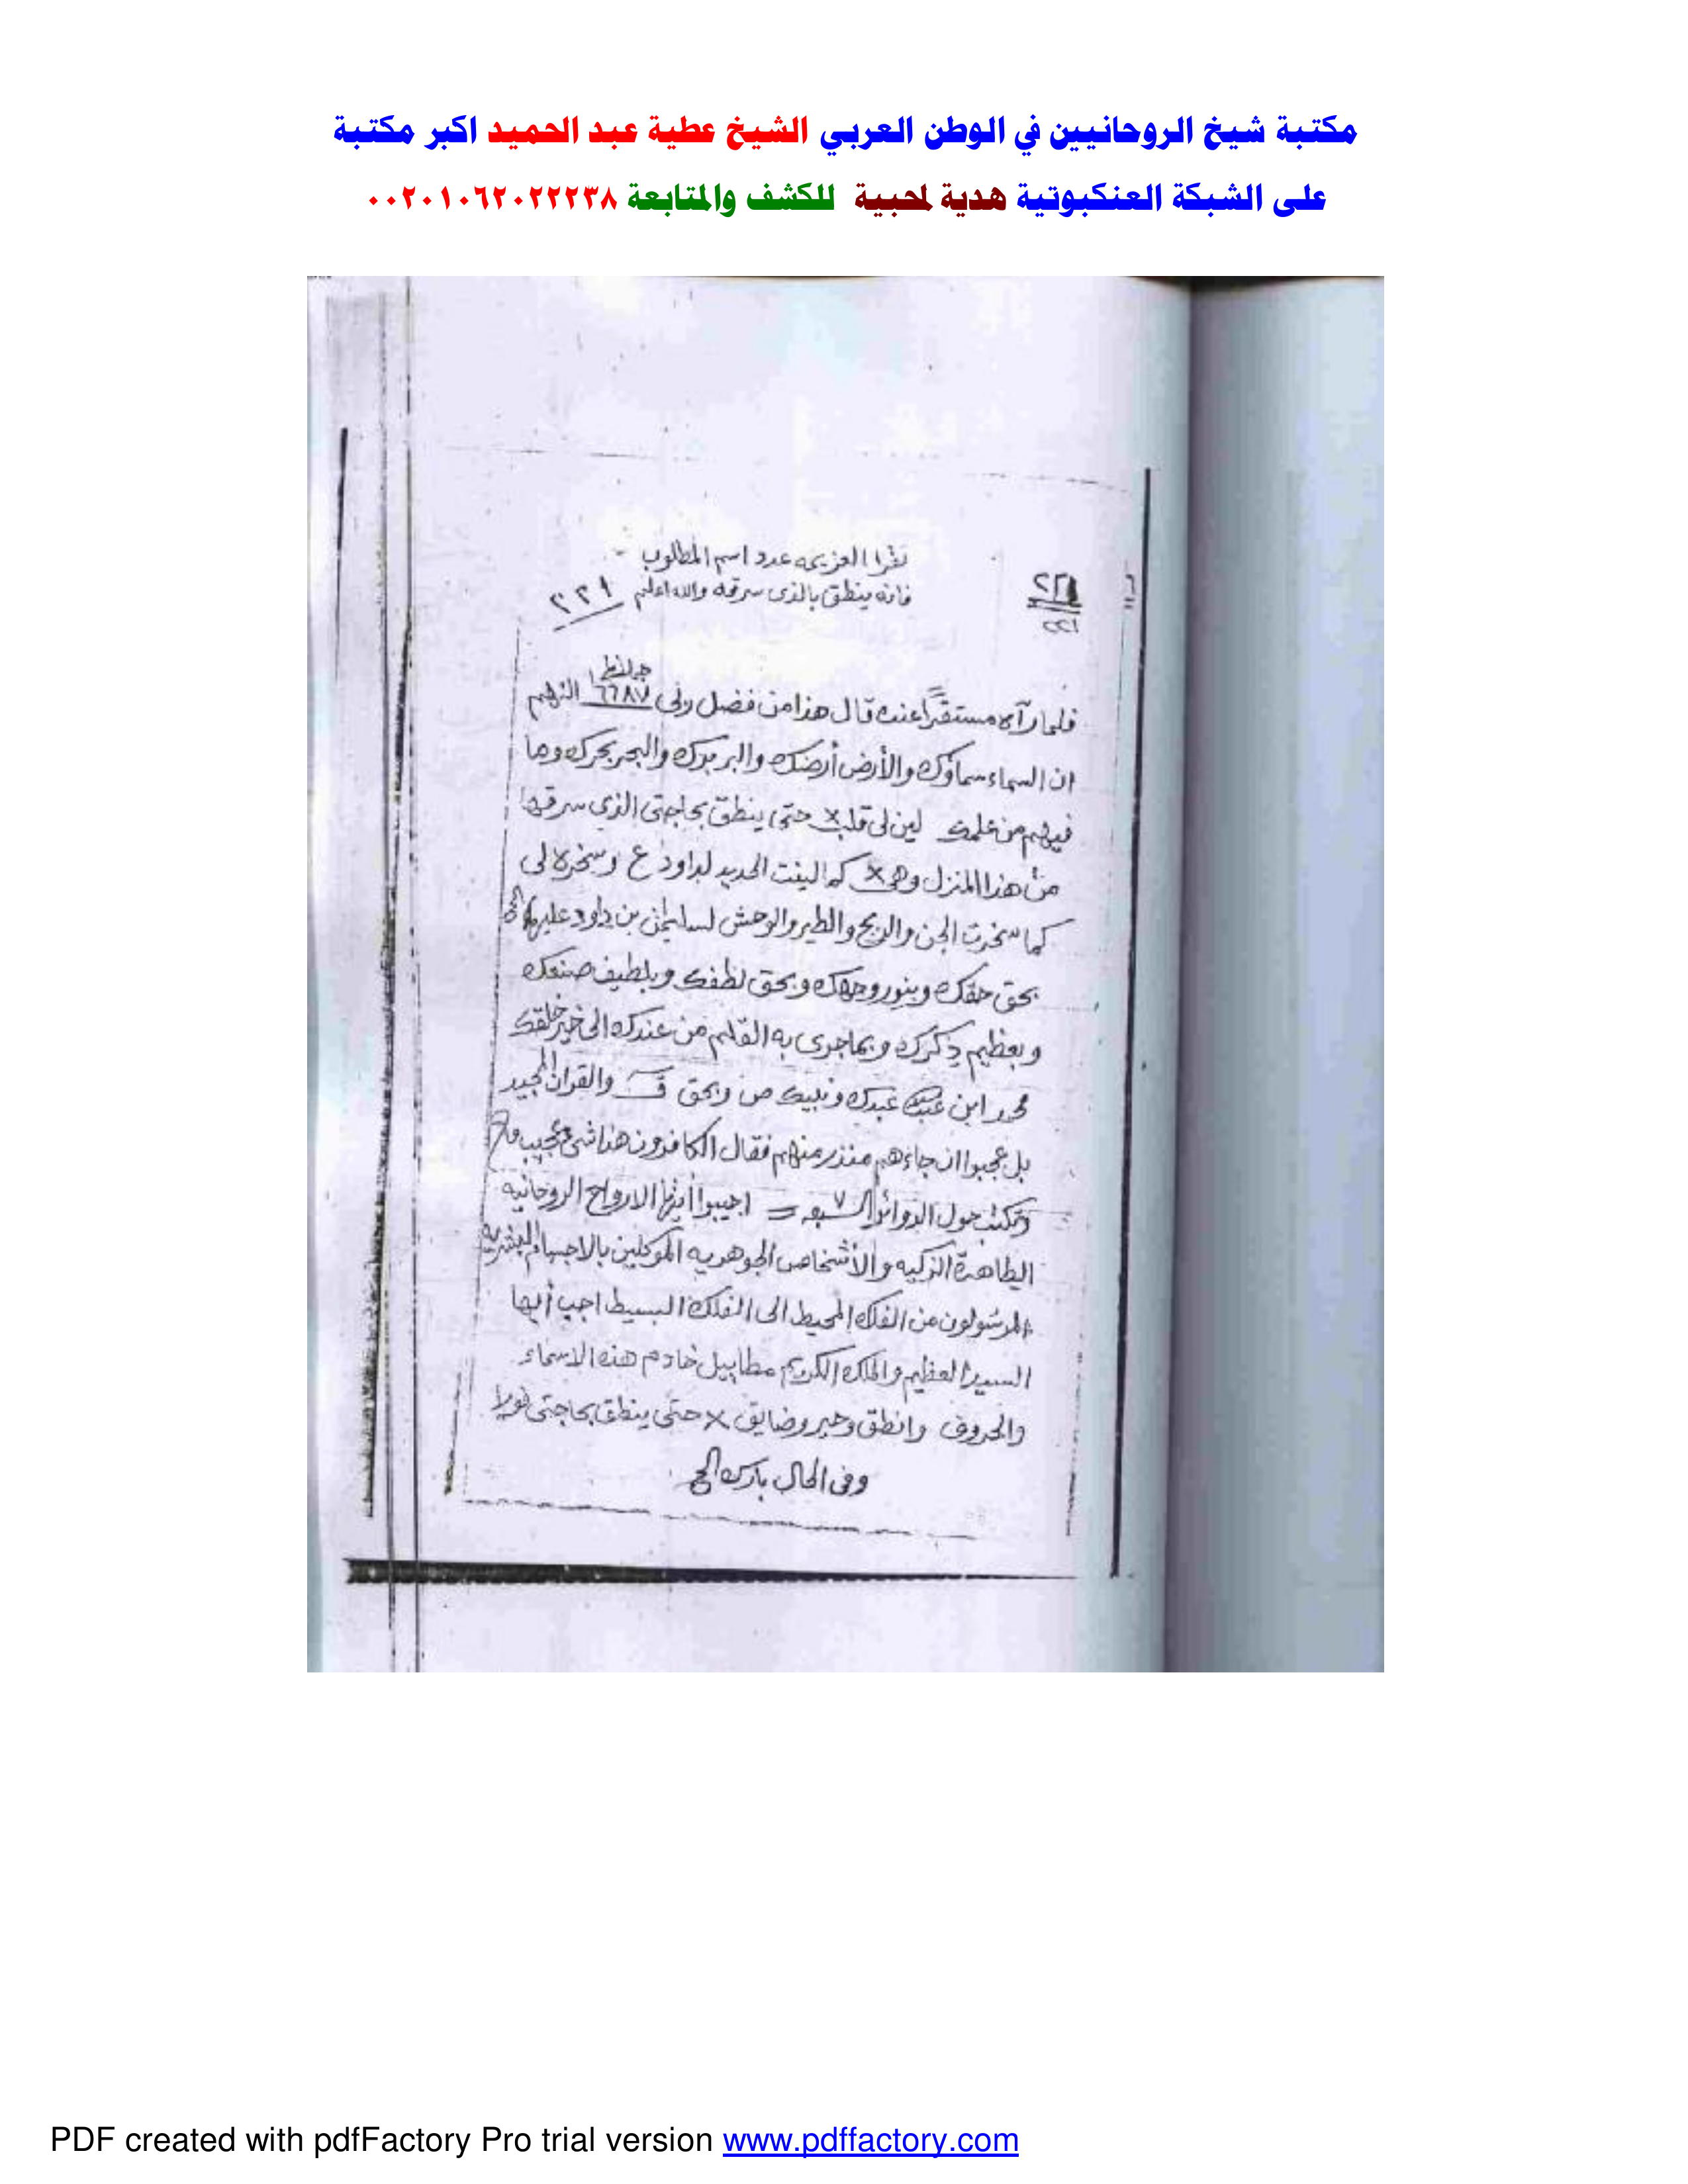 مكتبة شيخ الروحانيين في الوطن العربي الشيخ عطية عبد الحميد اكبر مكتبة
على الشبكة العنكبوتية هدية لمحبية للكشف والمتابعة ٠٠٢٠١٠٦٢٠٢٢٢٣٨
تقرا العزيمه عدد اسم المطلوب
فانه ينطق بالذى سرقه والله اعلم ٢٢١
٢٢١
٢٢١
فلما رآه مستقرًا عنده قال هذا من فضل ربى ٦٦٨٧ اللهم
ان السماء سماؤك والأرض أرضك والبر برك والبحر بحرك وما
فيهم من علمك لين لى قلب × حتى ينطق بحاجتى الذى سرقها
من هذا المنزل وهى × كما لينت الحديد لداود ع وسخره لى
كما سخرت الجن والريح والطير والوحش لسليمن بن داود عليهما
بحق حقك وبنور وجهك وبحق لطفك وبلطيف صنعك
وبعظيم ذكرك وبما جرى به القلم من عندك الى خير خلقك
محمد ابن عبدالله عبدك ونبيك ص وبحق ق والقران المجيد
بل عجبوا ان جاءهم منذر منهم فقال الكافرون هذا شئ عجيب
وتكتب حول الدوائر السبعه = اجيبوا أيتها الارواح الروحانيه
الطاهرة الزكيه والأشخاص الجوهريه الموكلين بالاجسام البشريه
المرسولون من الفلك المحيط الى الفلك البسيط اجب أيها
السيد العظيم والملك الكريم مطاييل خادم هذه الاسماء
والحروف وانطق وضايق × حتى ينطق بحاجتى
وفى الحال بارك الخ
PDF created with pdfFactory Pro trial version www.pdffactory.com